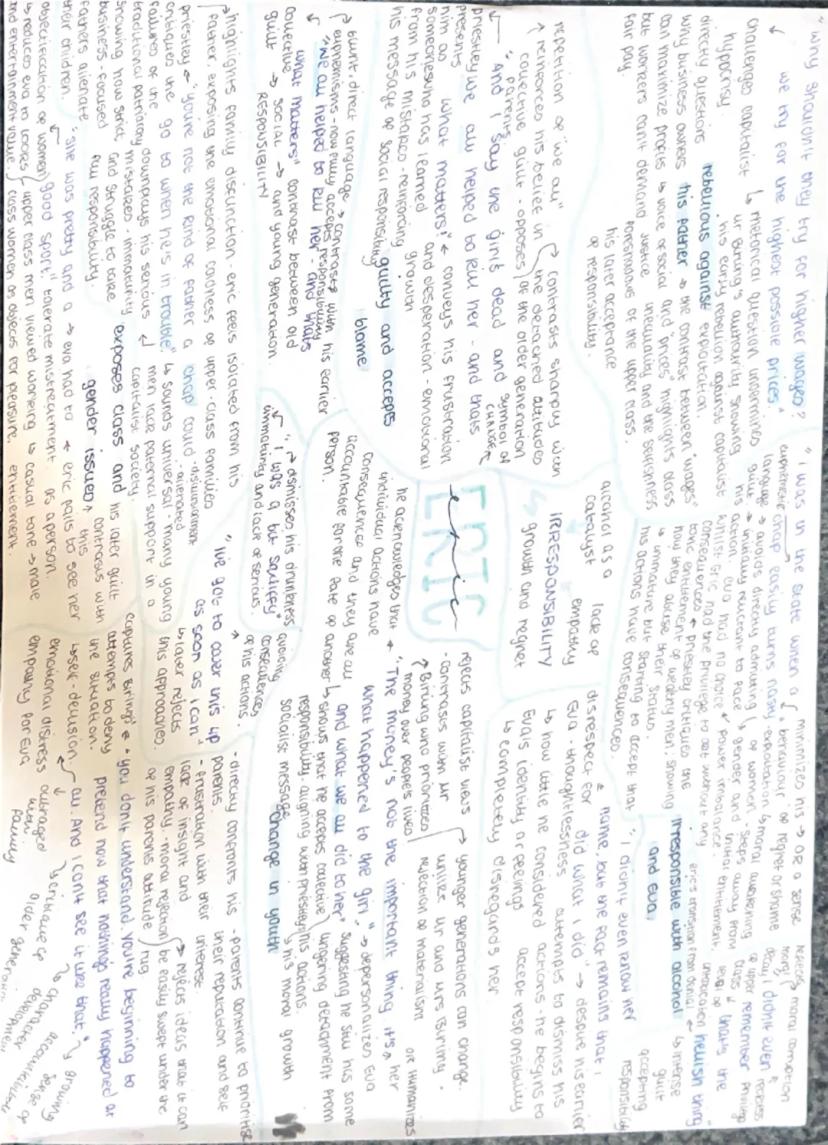 "Why shouldn't they try for higher wages?
we try for the highest possible prices"
challenges capitalist
hypocrisy.
↳ rhetorical question undermines
mr Birling's authourity, showing
his early rebellion against capitalist
exploitation.
directly questions
why business owners
can maximize profits
but workers can't demand
fair pay.
rebellious against
his father
→ the contrast between "wages"
and "prices" highlights class
inequality and the selfishness
of the upper class.
↳ voice of social
justice
foreshadows
his later acceptance
of responsibility.
repetition of "we all"
↑ reinforces his belief in
collective guilt - opposes
parents
contrasts sharply with
the detached attitudes
of the older generation
"And I say the girl's dead and
we all helped to kill her - and thats
what matters!"
symbol of
CHANGE
priestley
presents
him as
someone who has learned
from his mistakes - reinforcing
his message of social responsibility
← conveys his frustration
and desperation - emotional
growth
guilty and accepts
blame
blunt, direct language → contrasts with his earlier
euphemisms - now fully accepts responsibility
"We all helped to kill her and thats
what matters"
collective
guilt → social
RESPONSIBILITY
contrast between old
and young generation
highlights family disfunction - eric feels isolated from his
father, exposing the emotional coldness of upper-class families
"you're not the kind of father a chap could
go to when he's in trouble"
priestley
critiques the
failures of the
traditional patriarchy
showing how strict,
business-focused
fathers alienate
their children
downplays his serious
mistakes - immaturity
and struggle to take
full responsibility
· disillusionment
· alienated
↳ sounds universal - many young
men lack paternal support in a
capitalist society.
exposes class and
gender issues
his later guilt
contrasts with
this
"she was pretty and a
good sport"
→ eva had to
tolerate mistreatment
← eric fails to see her
as a person.
objectification of women
↳ reduces eva to looks
and entertainment value
upper class men viewed working
class women as objects for pleasure
↳ casual tone → male
entitlement.
ERIC
eric
"I was in the state when a
chap easily turns nasty"
euphemistic
language → avoids directly admitting
guilt
minimizes his
behaviour
→ or a sense
of regret or shame
initially reluctant to face
his action
- exploitation
of women
gender and
class
eva had no choice
whilst Eric had the privilege to act without any
consequences
power imbalance
← priestley critiques the
toxic entitlement of wealthy men, showing
how they abuse their status.
↳ immature but starting to accept that
his actions have consequences
moral awakening
- steps away from
initial entitlement
"I didn't even
remember
- that's the
hellish thing"
rejects
moral
decay
moral corruption
of upper
class
reckless
privilege
eric's transition from denial
↳ intense
guilt
accepting
responsibility
irresponsible with alcohol
and eva
alcohol as a
catalyst
lack of
empathy
IRRESPONSIBILITY
growth and regret
"I didn't even know her
name, but the fact remains that I
did what I did"
disrespect for
Eva - thoughtlessness
↳ how little he considered
Eva's identity or feelings
↳ completely disregards her
→ despite his earlier
attempts to dismiss his
actions - he begins to
accept responsibility
rejects capitalist views
- contrasts with mr
Birling who prioritises
money over people's lives
→ younger generations can change
unlike mr and mrs Birling.
rejection of materialism
"The money's not the important thing. It's
what happened to the girl
and what we all did to her"
he acknowledges that
individual actions have
consequences and they are all
accountable for the fate of another
person.
→ depersonalizes Eva
or humanizes
her
suggesting he still has some
lingering detachment from
his actions.
↳ shows that he accepts collective
responsibility, aligning with priestley's
socialist message
change in youth
↳ his moral growth
→ dismisses his drunkness
"I was a bit squiffy"
immaturity and lack of serious
avoiding
consequences
of his actions.
"I've got to cover this up
as soon as I can"
↳ later rejects
this approach
- directly confronts his
parents.
- frustration with their
lack of insight and
empathy - moral rejection
of his parents attitude
- parents continue to prioritise
their reputation and self
interest
→ rejects ideas that it can
be easily swept under the
rug
captures Birling's
attempts to deny
the situation.
"you don't understand. you're beginning to
pretend now that nothing's really happened at
all. And I can't see it like that."
↳ self-delusion.
emotional distress
empathy for Eva
outraged
with
family
↳ critique of
older generation
↳ character
development
↳ growing
sense of
accountability